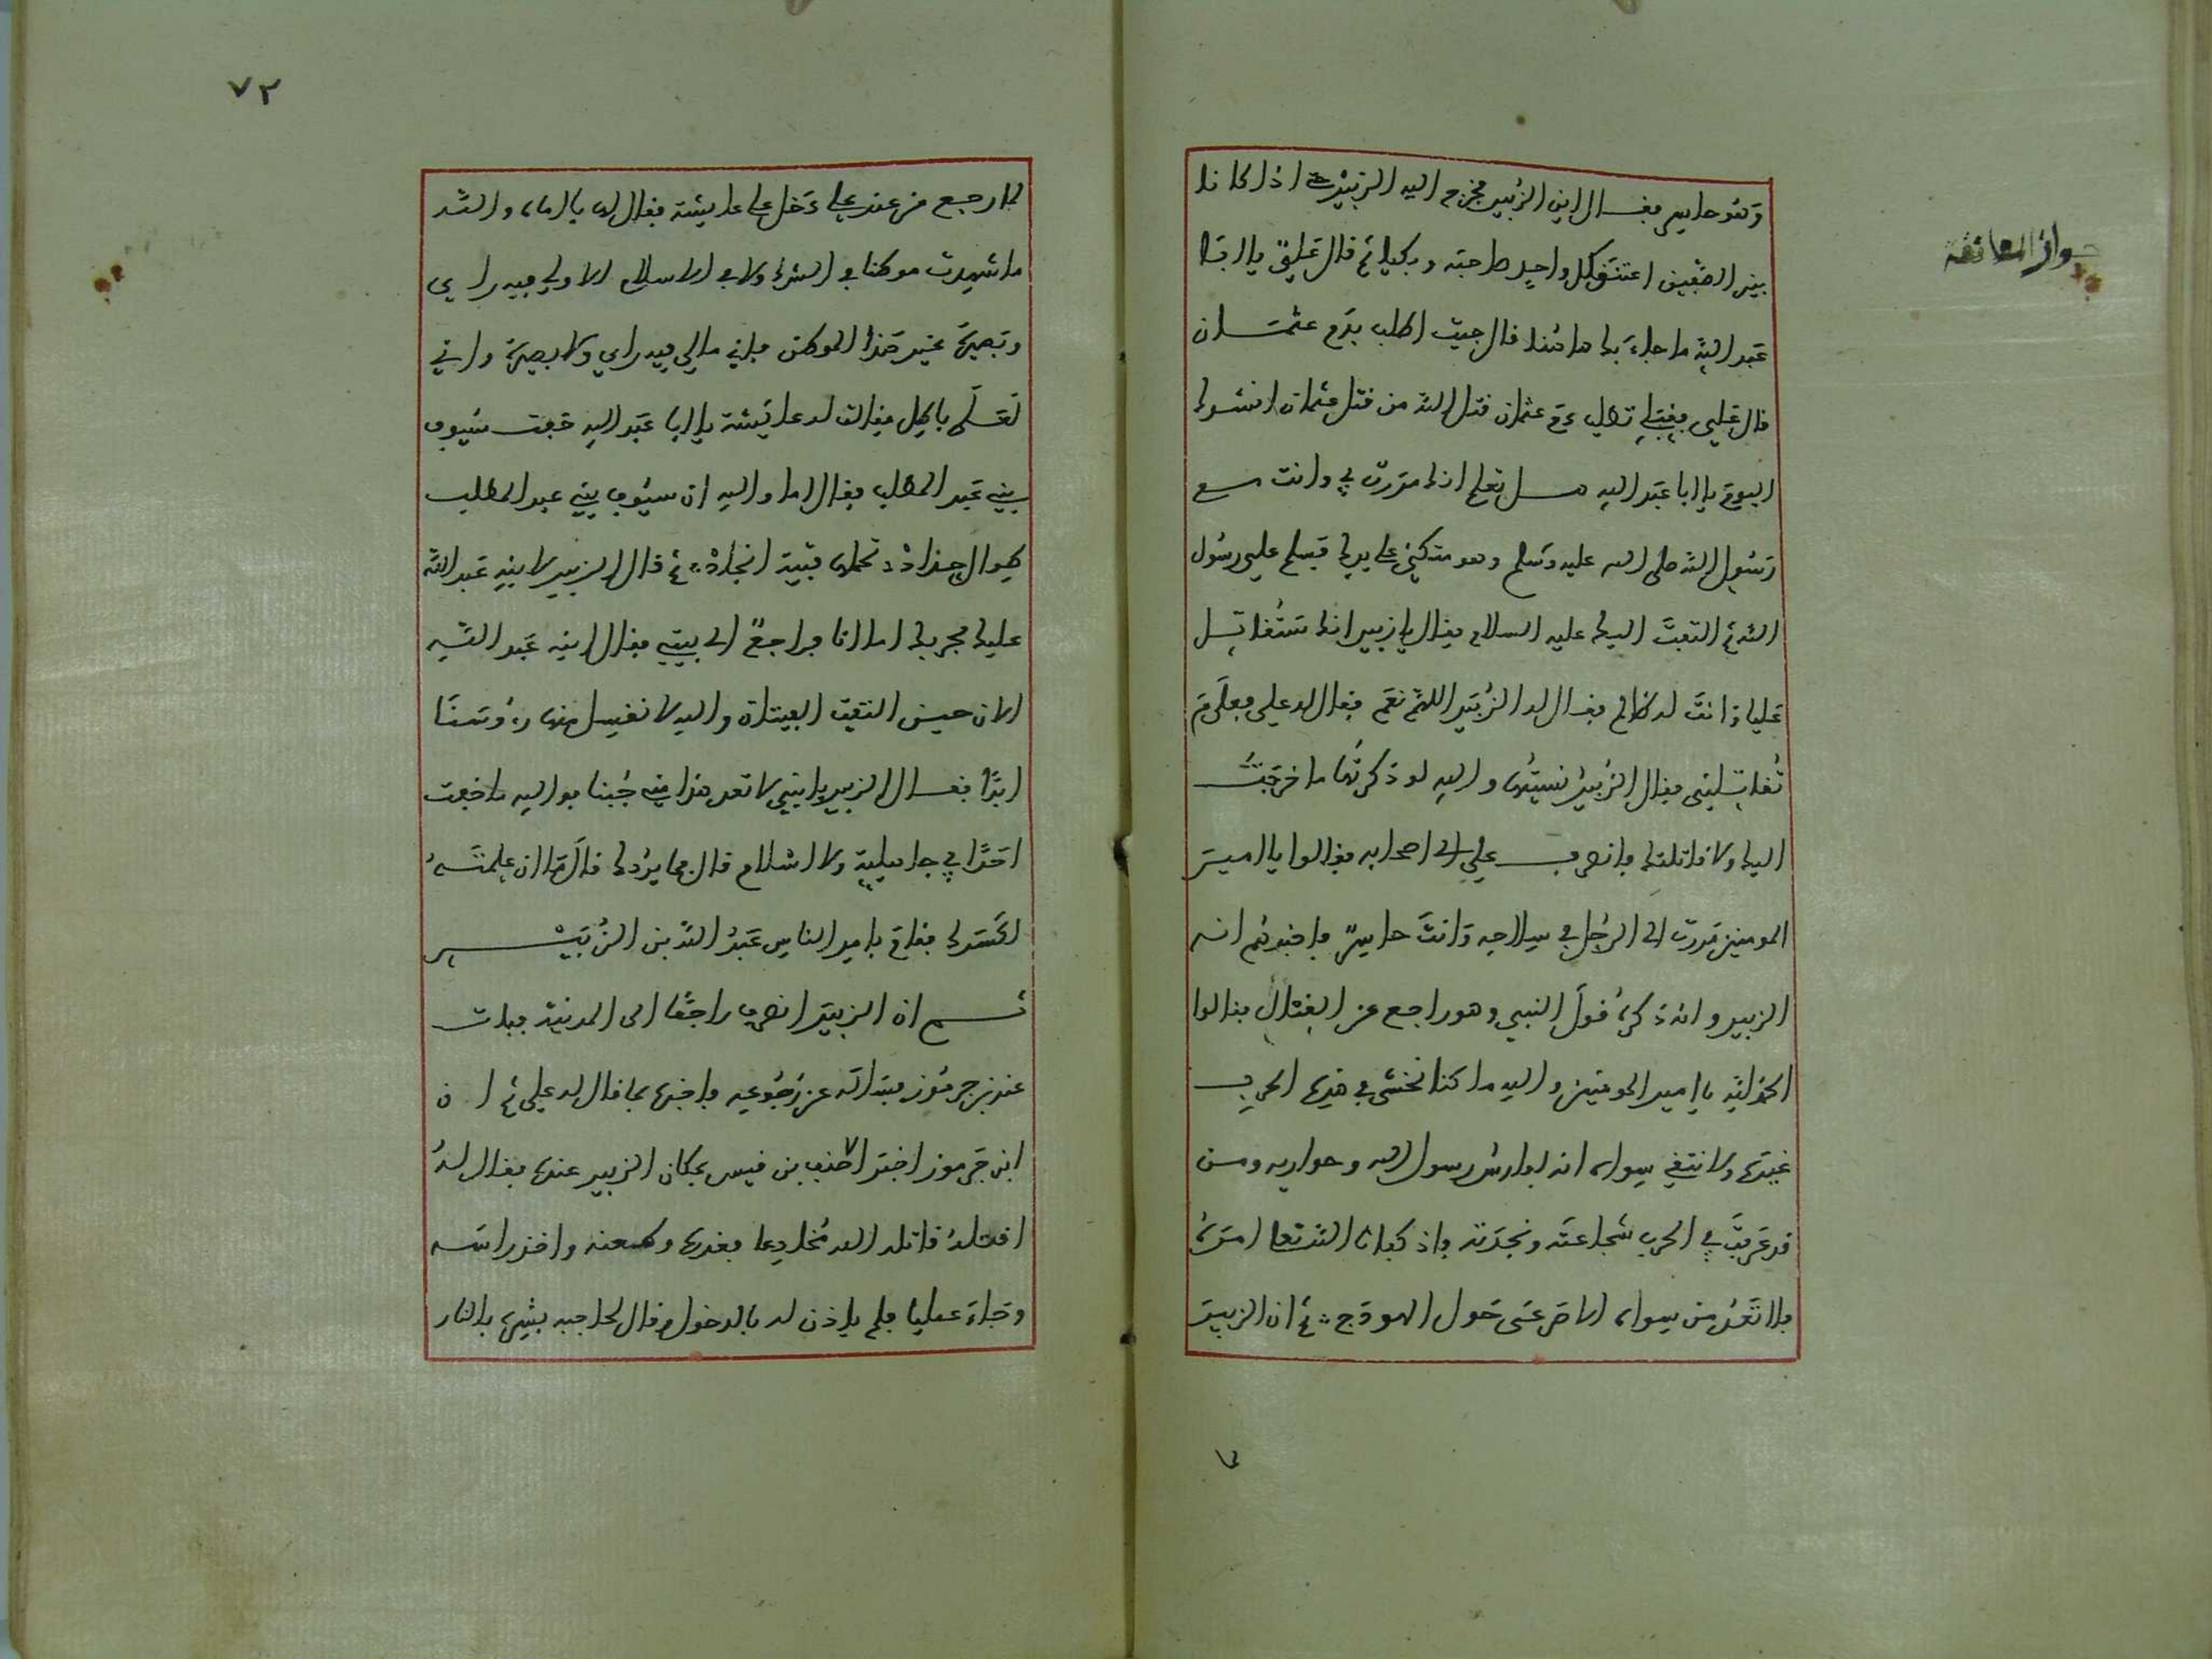 وهو حاسر فقال اين الزبير فخرج اليه الزبير حتى اذا كانا
جواز المعانقة
بين الصفين اعتنق كل واحد صاحبه وبكيا ثم قال علي يا ابا
عبد الله ما جاء بك هاهنا قال جيت اطلب بدم عثمان
قال علي تطلب دم عثمان قتل الله من قتل عثمان انشدك
اليوم يا ابا عبد الله هل تعلم انك مررت بي وانت مع
رسول الله صلى الله عليه وسلم وهو متكئ على يدك فسلم علي رسول
الله ثم التفت اليك عليه السلام فقال يا زبير انك ستقاتل
عليا وانت له ظالم فقال له الزبير اللهم نعم فقال له علي فعلى م
تقاتلني فقال الزبير نسيتها والله لو ذكرتها ما خرجت
اليك ولا قاتلتك فانصرف علي الى اصحابه فقالوا يا امير
المومنين مررت الى الرجل في سلاحه وانت حاسر فاخبرهم انه
الزبير وانه ذكره قول النبي وهو راجع عن القتال فقالوا
الحمد لله يا امير المومنين والله ما كنا نخشى في هذه الحرب
غيره ولا نتقي سواه انه لفارس رسول الله وحواريه ومن
قد عرفت في الحرب شجاعته ونجدته فاذ كفاناه الله تعا امره
فلا تعد من سواه الا صرعى حول الهودج ثم ان الزبير
٧٢
لما رجع من عند علي دخل على عايشة فقال لها يا اماه والله
ما شهدت موطنا في الشرك ولا في الاسلام الا ولي فيه راي
وبصيرة غير هذا الموطن فاني ما لي فيه راي ولا بصيرة واني
لعلى باطل فقالت له عايشة يا ابا عبد الله خفت سيوف
بني عبد المطلب فقال اما والله ان سيوف بني عبد المطلب
طوال حداد تحملها فتية انجاد ثم قال الزبير لابنه عبد الله
عليك بحربك اما انا فراجع الى بيتي فقال ابنه عبد الله
الان حين التقت الفيتان والله لا نغسل منها رءوسنا
ابدا فقال الزبير يا بني لا تعد هذا مني جبنا فوالله ما خفت
احدا في جاهلية ولا اسلام قال فما يردك قال ما ان علمته
كسرك فقام بامر الناس عبد الله بن الزبير
ثم ان الزبير انصرف راجعا الى المدينة فبات
عند بن جرموز فساله عن رجوعه فاخبره بما قال له علي ثم ان
ابن جرموز اخبر الاحنف بن قيس بمكان الزبير عنده فقال له
اقتله قاتله الله مخادعا فغدره وطعنه واخذ راسه
وجاء عليا فلم ياذن له بالدخول وقال لحاجبه بشره بالنار